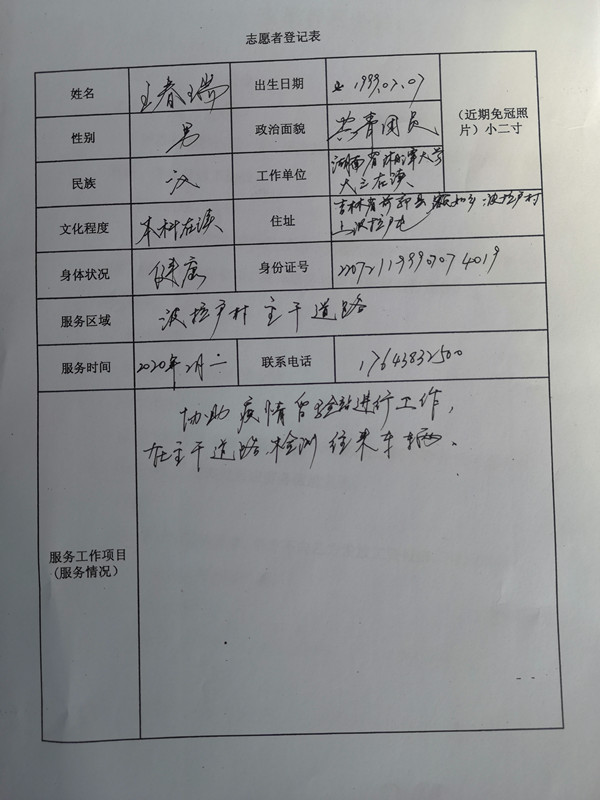 志愿者登记表
姓名 王春瑞 出生日期 1999.07.07
(近期免冠照片)小二寸
性别 男 政治面貌 共青团员
民族 汉 工作单位 河南省 大学
大三在读
文化程度 本科在读 住址 吉林省 县 乡波拉户村
上波拉户屯
身体状况 健康 身份证号
服务区域 波拉户村主干道路
服务时间 2020年2月 联系电话 17643832500
服务工作项目
(服务情况)
协助疫情 验站进行工作,
在主干道路检测往来车辆.